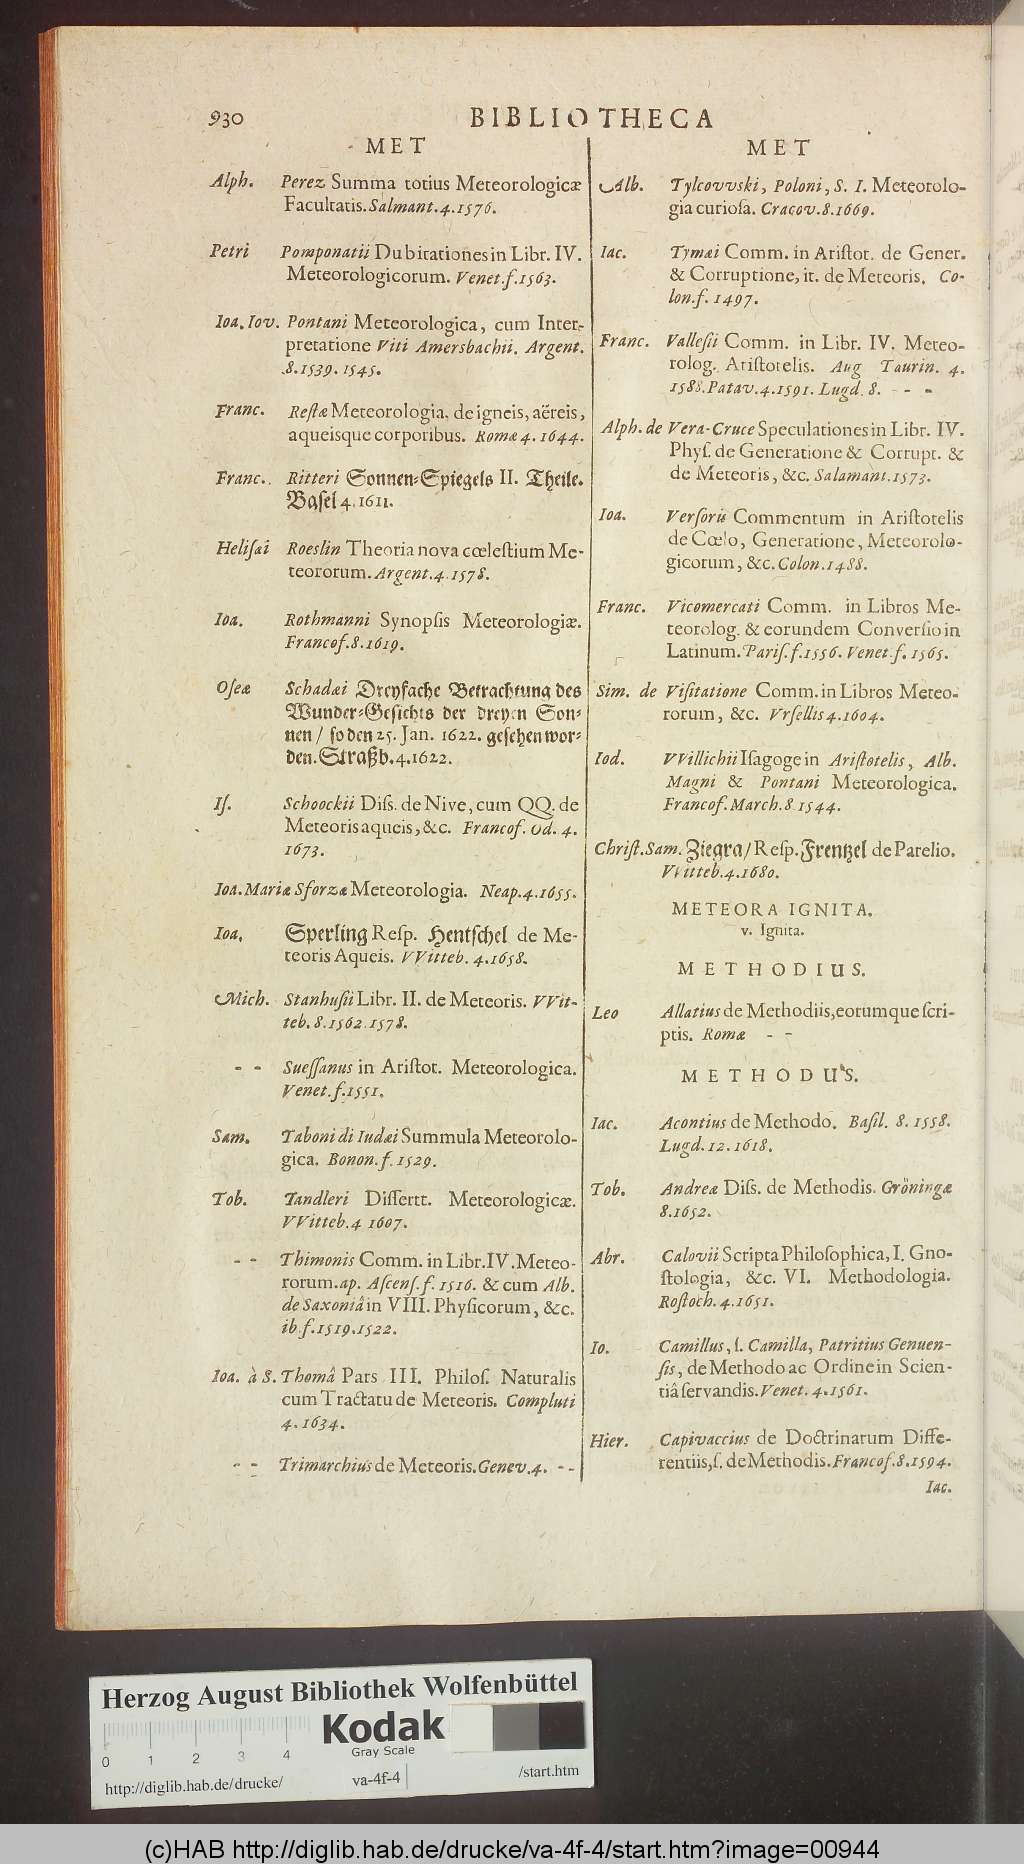 930
BIBLIOTHECA
MET
Alph. Perez Summa totius Meteorologicæ
Facultatis. Salmant. 4. 1576.
Petri Pomponatii Dubitationes in Libr. IV.
Meteorologicorum. Venet. f. 1563.
Ioa. Iov. Pontani Meteorologica, cum Inter-
pretatione Viti Amersbachii. Argent.
8. 1539. 1545.
Franc. Reſtæ Meteorologia, de igneis, aëreis,
aqueisque corporibus. Romæ 4. 1644.
Franc. Ritteri Sonnen-Spiegels II. Theile.
Baſel 4. 1611.
Heliſæi Roeslin Theoria nova cœleſtium Me-
teororum. Argent. 4. 1578.
Ioa. Rothmanni Synopſis Meteorologiæ.
Francof. 8. 1619.
Oſeæ Schadæi Dreyfache Betrachtung des
Wunder-Geſichts der dreyen Son-
nen / ſo den 25. Jan. 1622. geſehen wor-
den. Straßb. 4. 1622.
Iſ. Schoockii Diſſ. de Nive, cum QQ. de
Meteoris aqueis, &c. Francof. Od. 4.
1673.
Ioa. Mariæ Sforzæ Meteorologia. Neap. 4. 1655.
Ioa. Sperling Reſp. Hentſchel de Me-
teoris Aqueis. VVitteb. 4. 1658.
Mich. Stanhuſii Libr. II. de Meteoris. VVit-
teb. 8. 1562. 1578.
- - Sueſſanus in Ariſtot. Meteorologica.
Venet. f. 1551.
Sam. Taboni di Iudæi Summula Meteorolo-
gica. Bonon. f. 1529.
Tob. Tandleri Diſſertt. Meteorologicæ.
VVitteb. 4 1607.
- - Thimonis Comm. in Libr. IV. Meteo-
rorum. ap. Aſcenſ. f. 1516. & cum Alb.
de Saxoniâ in VIII. Phyſicorum, &c.
ib. f. 1519. 1522.
Ioa. à S. Thomâ Pars III. Philoſ. Naturalis
cum Tractatu de Meteoris. Compluti
4. 1634.
- - Trimarchius de Meteoris. Genev. 4. - -
MET
Alb. Tylcovvski, Poloni, S. I. Meteorolo-
gia curioſa. Cracov. 8. 1669.
Iac. Tymæi Comm. in Ariſtot. de Gener.
& Corruptione, it. de Meteoris. Co-
lon. f. 1497.
Franc. Valleſii Comm. in Libr. IV. Meteo-
rolog. Ariſtotelis. Aug Taurin. 4.
1588. Patav. 4. 1591. Lugd. 8. - - -
Alph. de Vera-Cruce Speculationes in Libr. IV.
Phyſ. de Generatione & Corrupt. &
de Meteoris, &c. Salamant. 1573.
Ioa. Verſoris Commentum in Ariſtotelis
de Cœlo, Generatione, Meteorolo-
gicorum, &c. Colon. 1488.
Franc. Vicomercati Comm. in Libros Me-
teorolog. & eorundem Converſio in
Latinum. Pariſ. f. 1556. Venet. f. 1565.
Sim. de Viſitatione Comm. in Libros Meteo-
rorum, &c. Vrſellis 4. 1604.
Iod. VVillichii Iſagoge in Ariſtotelis, Alb.
Magni & Pontani Meteorologica.
Francof. March. 8. 1544.
Chriſt. Sam. Ziegra / Reſp. Frentzel de Parelio.
VVitteb. 4. 1680.
METEORA IGNITA.
v. Ignita.
METHODIUS.
Leo Allatius de Methodiis, eorumque ſcri-
ptis. Romæ - -
METHODUS.
Iac. Acontius de Methodo. Baſil. 8. 1558.
Lugd. 12. 1618.
Tob. Andreæ Diſſ. de Methodis. Gröningæ
8. 1652.
Abr. Calovii Scripta Philoſophica, I. Gno-
ſtologia, &c. VI. Methodologia.
Roſtoch. 4. 1651.
Io. Camillus, ſ. Camilla, Patritius Genuen-
ſis, de Methodo ac Ordine in Scien-
tiâ ſervandis. Venet. 4. 1561.
Hier. Capivaccius de Doctrinarum Diffe-
rentiis, ſ. de Methodis. Francof. 8. 1594.
Iac.
Herzog August Bibliothek Wolfenbüttel
Kodak
Gray Scale
0 1 2 3 4
http://diglib.hab.de/drucke/ va-4f-4 /start.htm
(c)HAB http://diglib.hab.de/drucke/va-4f-4/start.htm?image=00944